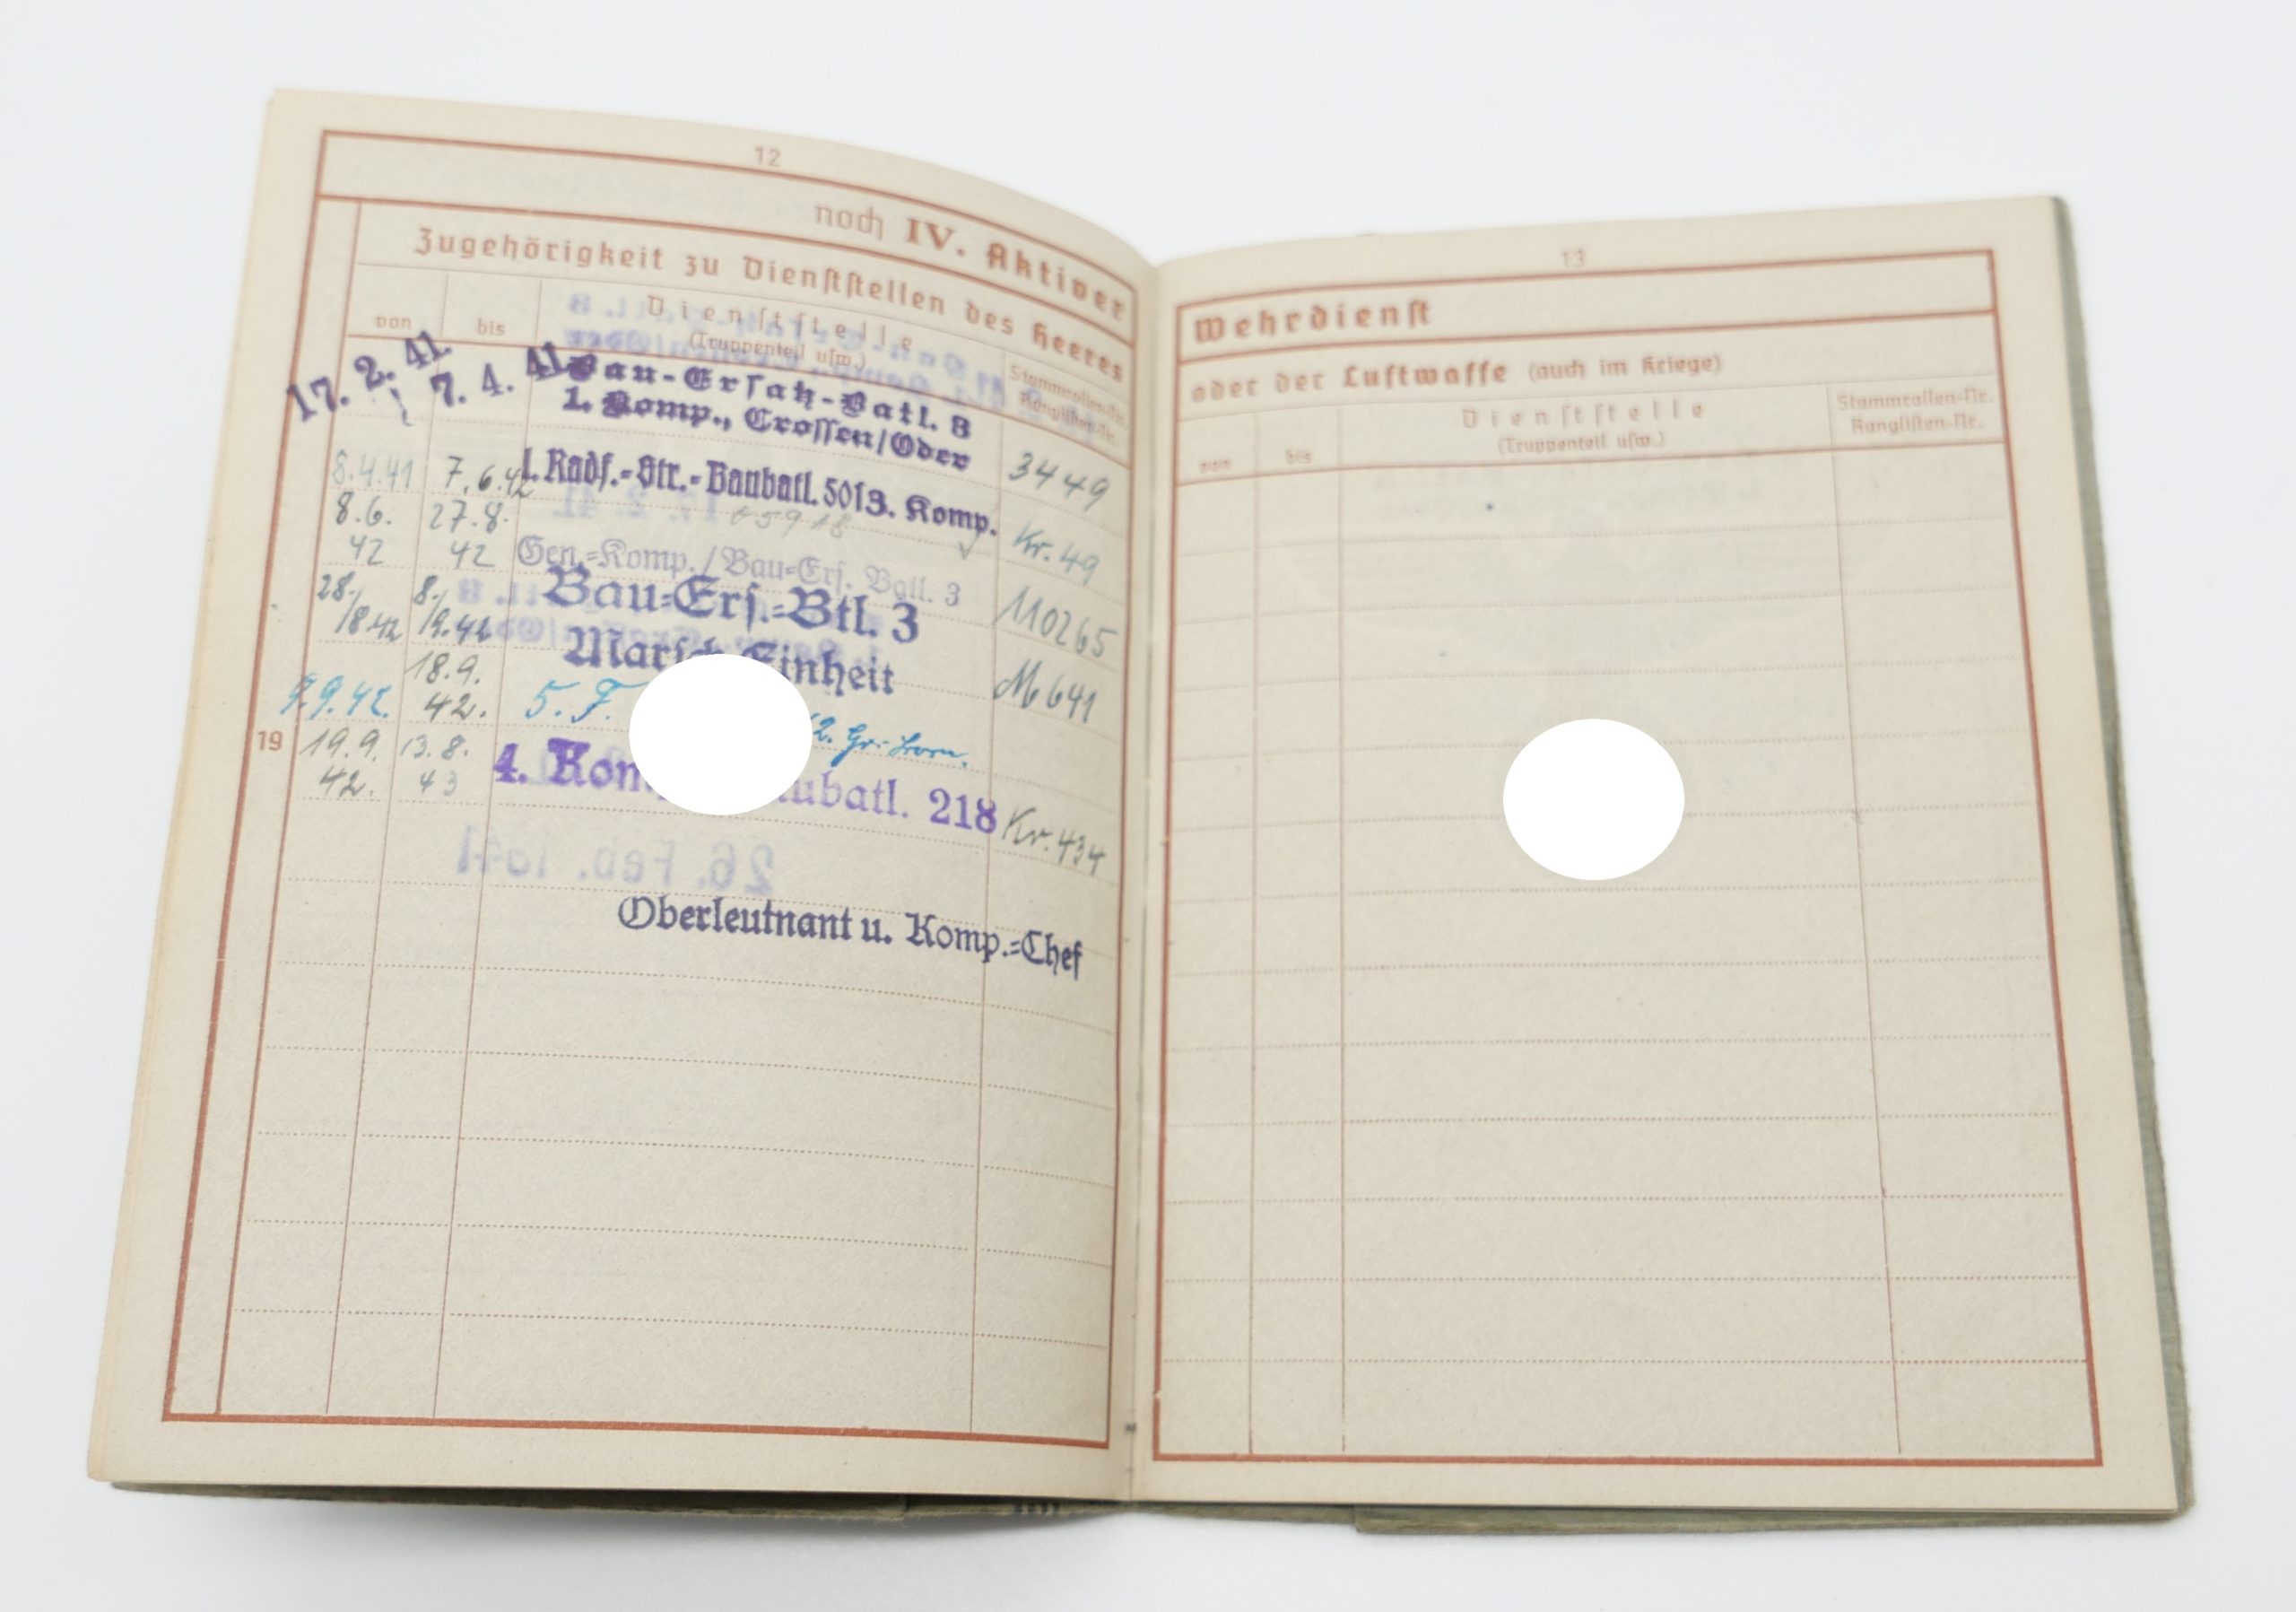 12
noch IV. Aktiver
Zugehörigkeit zu Dienststellen des Heeres
von bis Dienststelle
(Truppenteil usw.)
Stammrollen-Nr.
Ranglisten-Nr.
17. 2. 41. 7. 4. 41. Bau-Ersatz-Batl. 8
1. Komp., Crossen/Oder 3449
8.4.41 7.6.42 1. Radf.-Str.-Baubatl. 501 3. Komp. Kr. 49
8.6. 27.8.
42 42 Gen.-Komp./Bau-Ers. Batl. 3 110265
28. 8. Bau-Ers.-Btl. 3
/8.42 /9.42 Marsch Einheit M 641
9.9.42. 18.9.
42. 5. F. 2.
19 19.9. 13.8.
42. 43 4. Kom ubatl. 218 Kr. 434
26. Feb. 1941
Oberleutnant u. Komp.-Chef
13
Wehrdienst
oder der Luftwaffe (auch im Kriege)
von bis Dienststelle
(Truppenteil usw.)
Stammrollen-Nr.
Ranglisten-Nr.